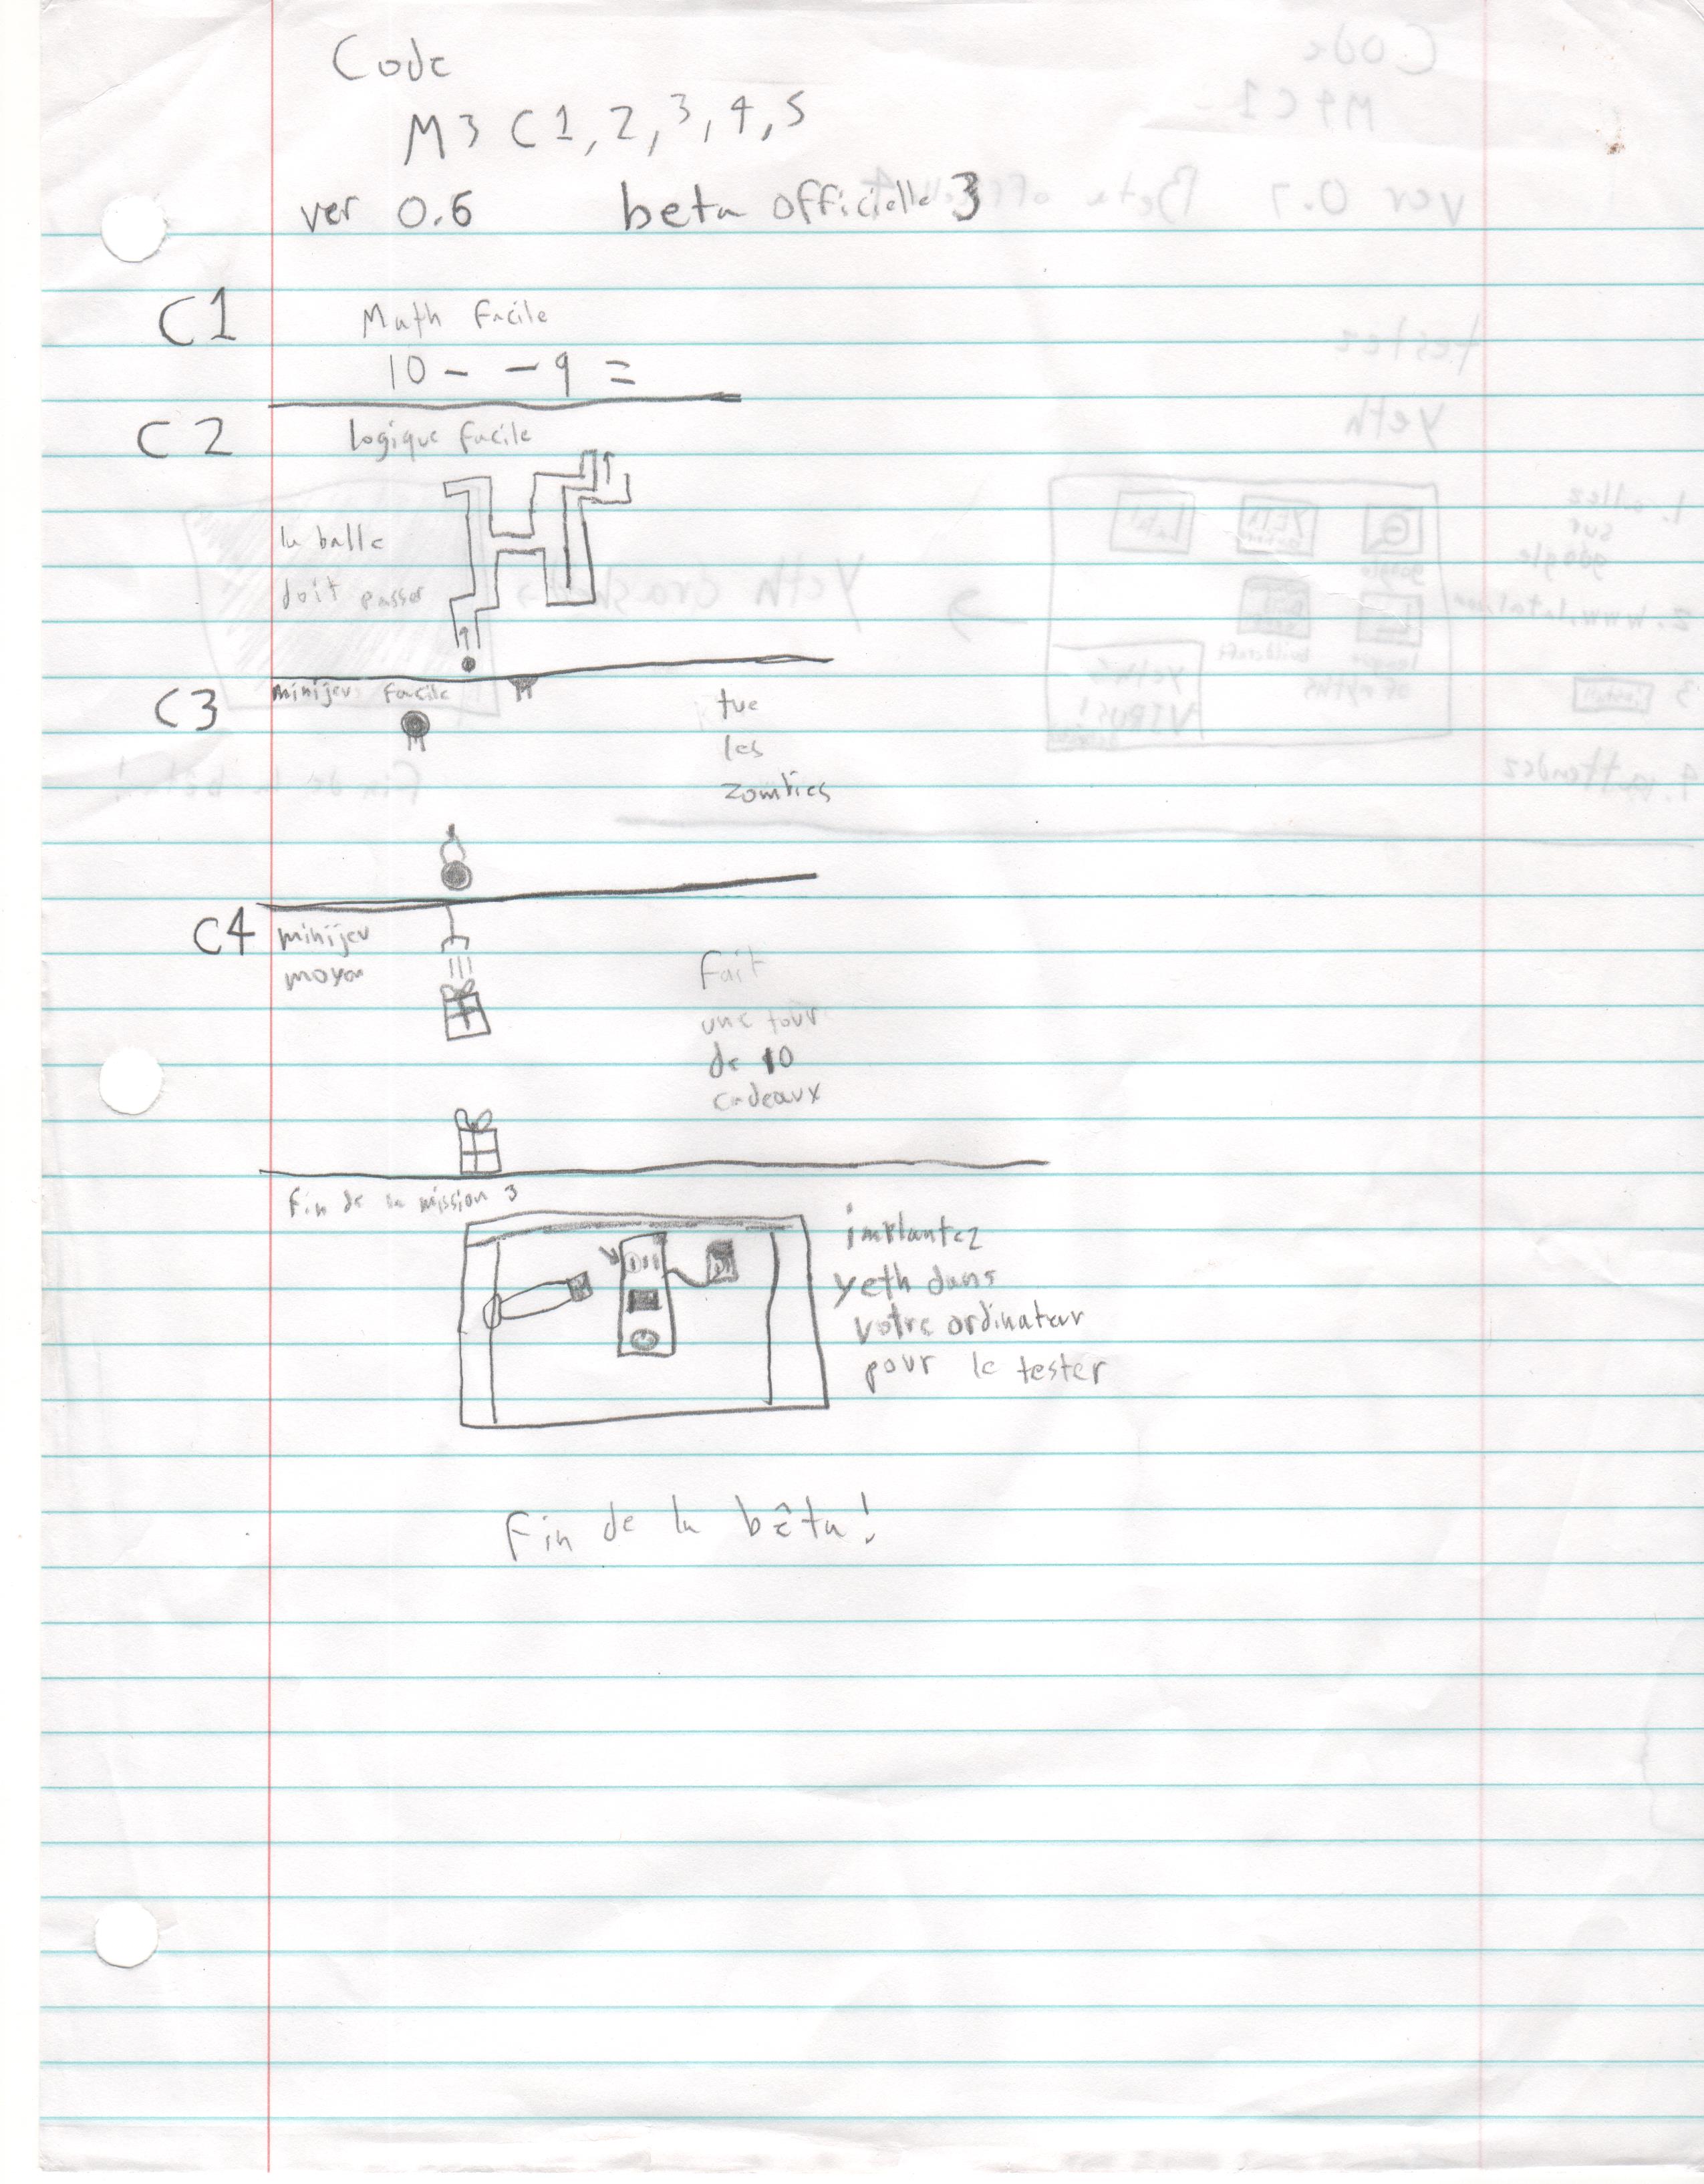 Code
M3 C1, 2, 3, 4, 5
ver 0.6 beta officielle 3
C1 Math facile
10 - - 9 =
C2 logique facile
la balle
doit passer
C3 minijeu facile
tue
les
zombies
C4 minijeu
moyon
fait
une tour
de 10
cadeaux
fin de la mission 3
implantez
yeth dans
votre ordinateur
pour le tester
fin de la bêta!